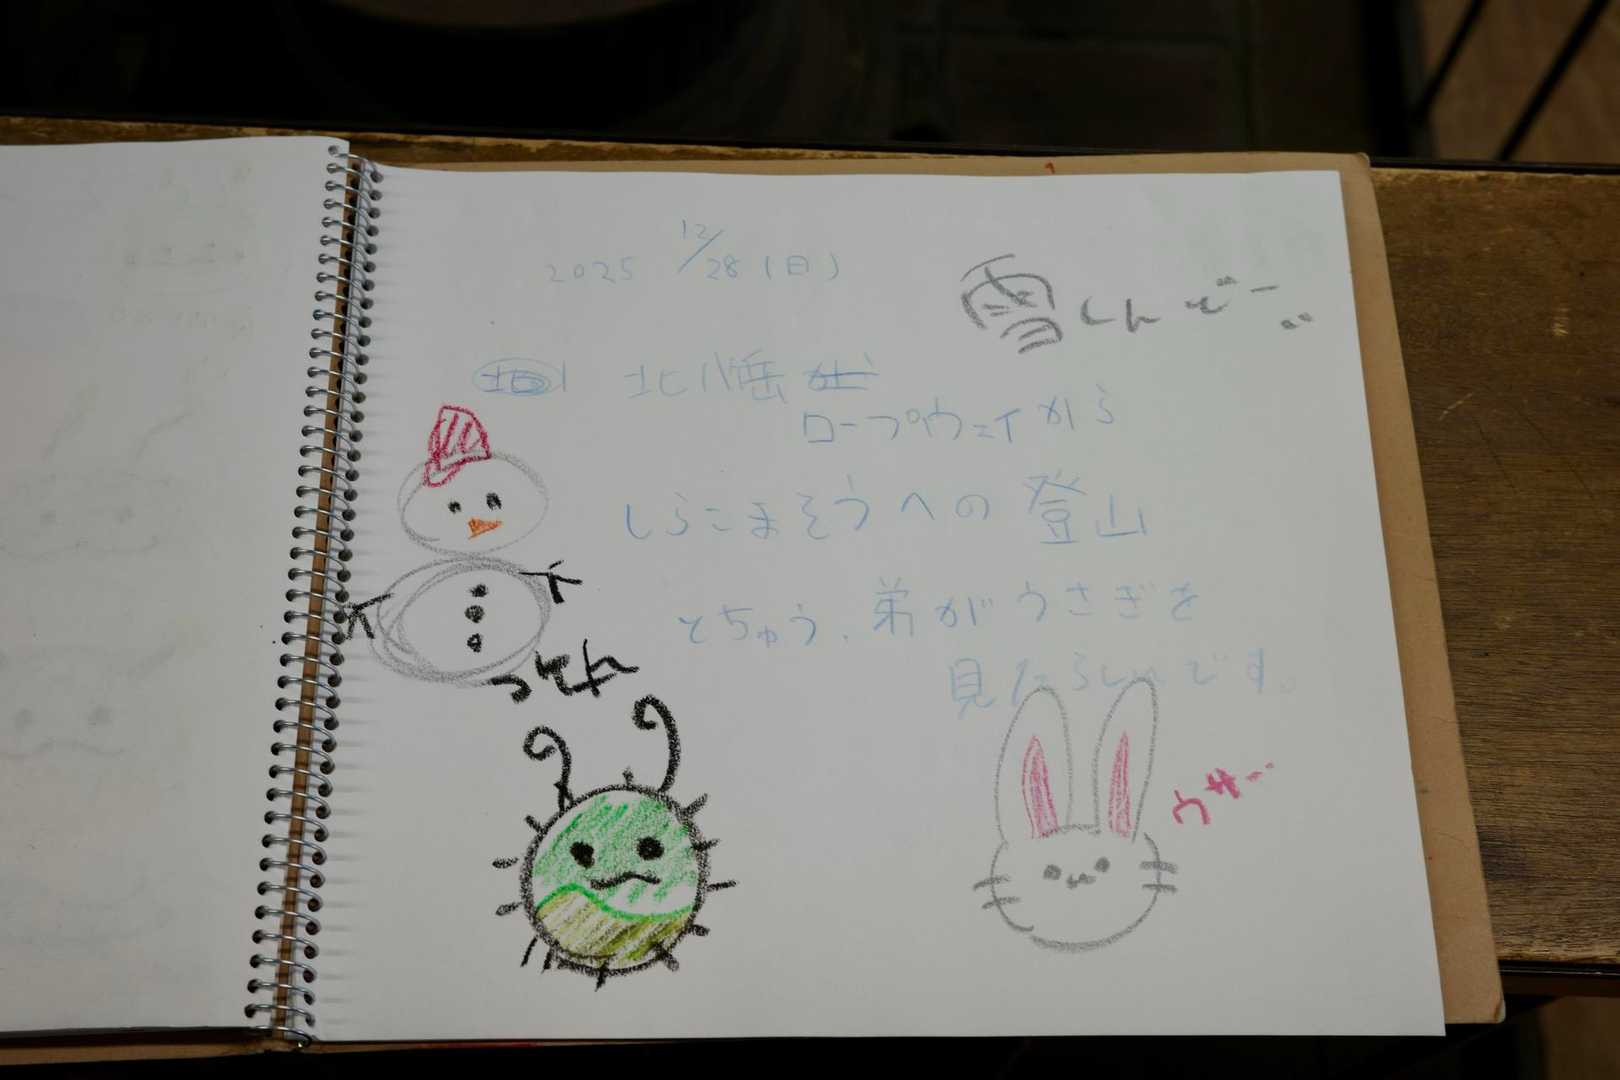 2025 12/28(日)
北八岳
ロープウェイから
しらこまそうへの登山
とちゅう、弟がうさぎを
見たらしいです。
ウサ…